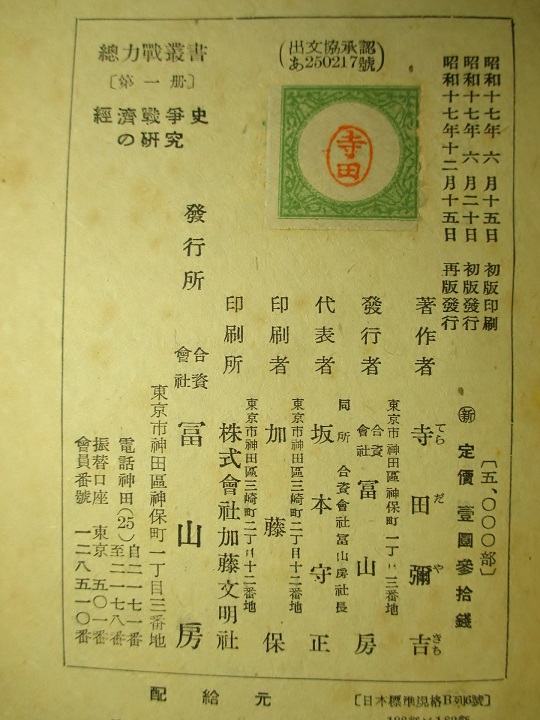 昭和十七年六月十五日 初版印刷
昭和十七年六月二十日 初版發行
昭和十七年十二月十五日 再版發行
(出文協承認
あ250217號)
寺田
總力戰叢書
〔第一册〕
經濟戰爭史
の研究
〔五、〇〇〇部〕
㊟新 定價壹圓參拾錢
著作者 寺田彌吉
てら だ や きち
東京市神田區神保町一丁目三番地
發行者 合資會社 冨山房
同所 合資會社冨山房社長
代表者 坂本守正
東京市神田區三崎町二丁目十二番地
印刷者 加藤保
東京市神田區三崎町二丁目十二番地
印刷所 株式會社加藤文明社
發行所 合資會社 冨山房
東京市神田區神保町一丁目三番地
電話神田(25)自二一七一番至二一七八番
振替口座 東京 五〇一番
會員番號 一二八五一〇番
配給元
〔日本標準規格B列6號〕